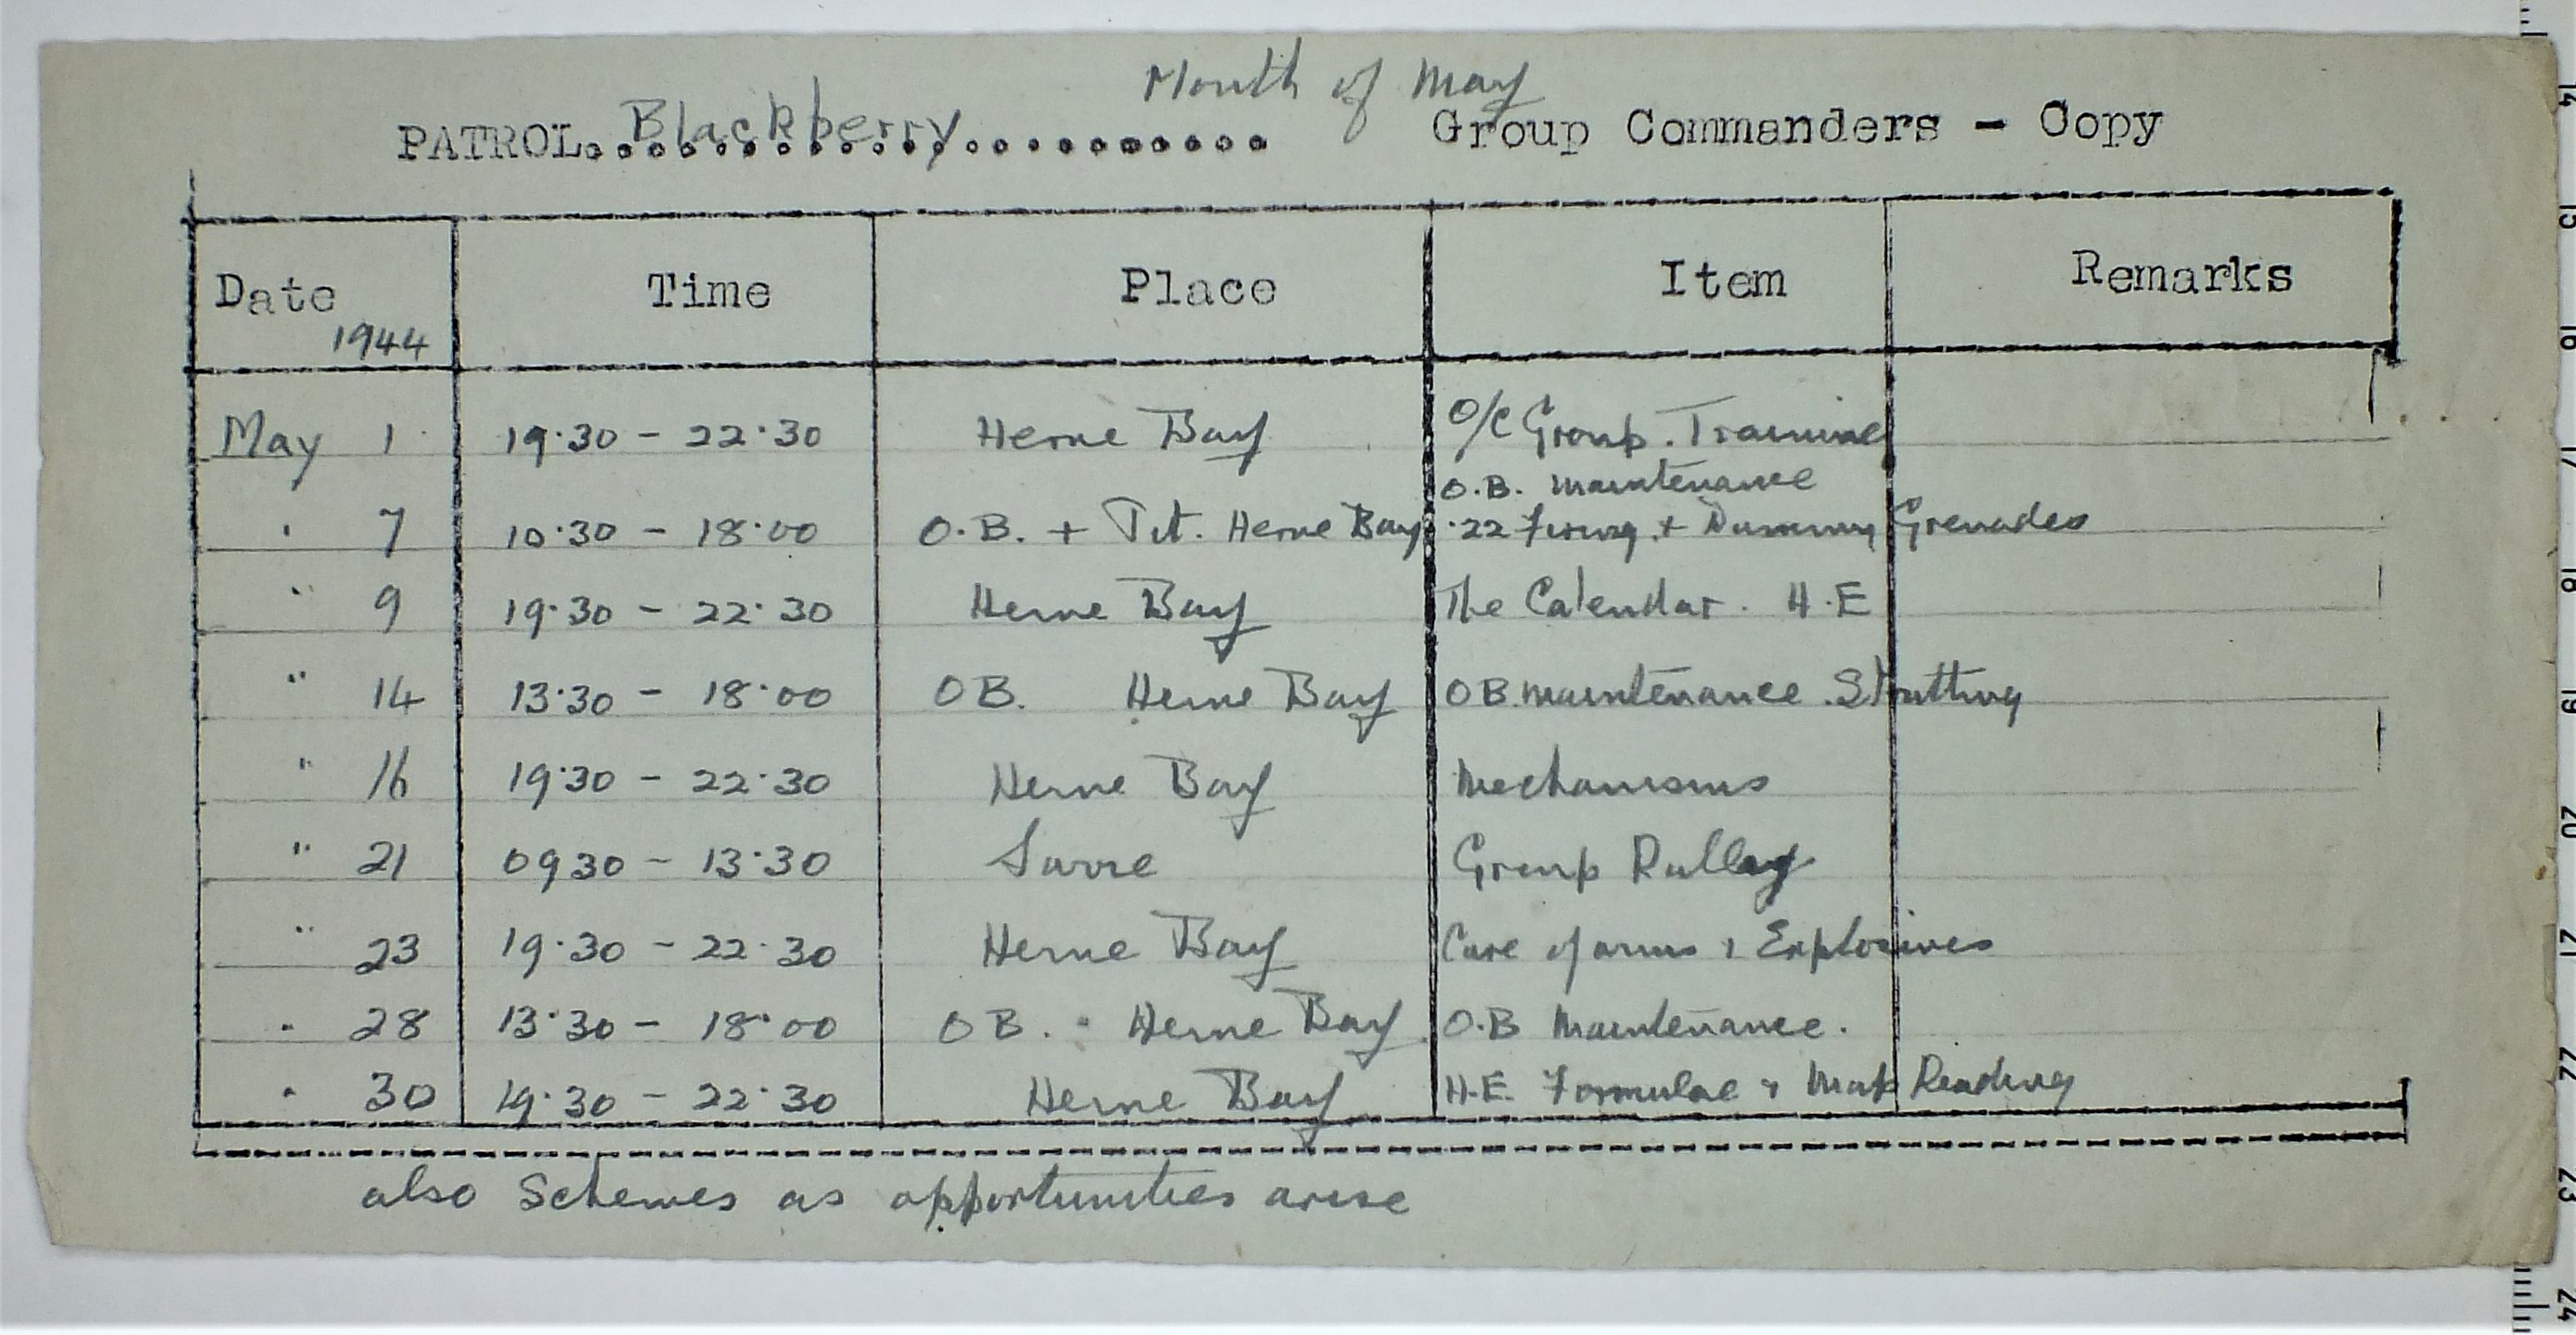 Month of May
PATROL. Blackberry.......... Group Commanders - Copy
Date 1944 Time Place Item Remarks
May 1 19.30 - 22.30 Herne Bay O/C Group. Training
O.B. Maintenance
" 7 10.30 - 18.00 O.B. + Pit. Herne Bay .22 Firing + Dummy Grenades
" 9 19.30 - 22.30 Herne Bay The Calendar. H.E
" 14 13.30 - 18.00 OB. Herne Bay OB. Maintenance.
" 16 19.30 - 22.30 Herne Bay Mechanisms
" 21 0930 - 13.30 Sarre Group Rally
" 23 19.30 - 22.30 Herne Bay Care of arms & Explosives
" 28 13.30 - 18.00 OB. Herne Bay O.B Maintenance.
" 30 19.30 - 22.30 Herne Bay H.E. Formulae & Map Reading
also Schemes as opportunities arise
14
15
16
17
18
19
20
21
22
23
24